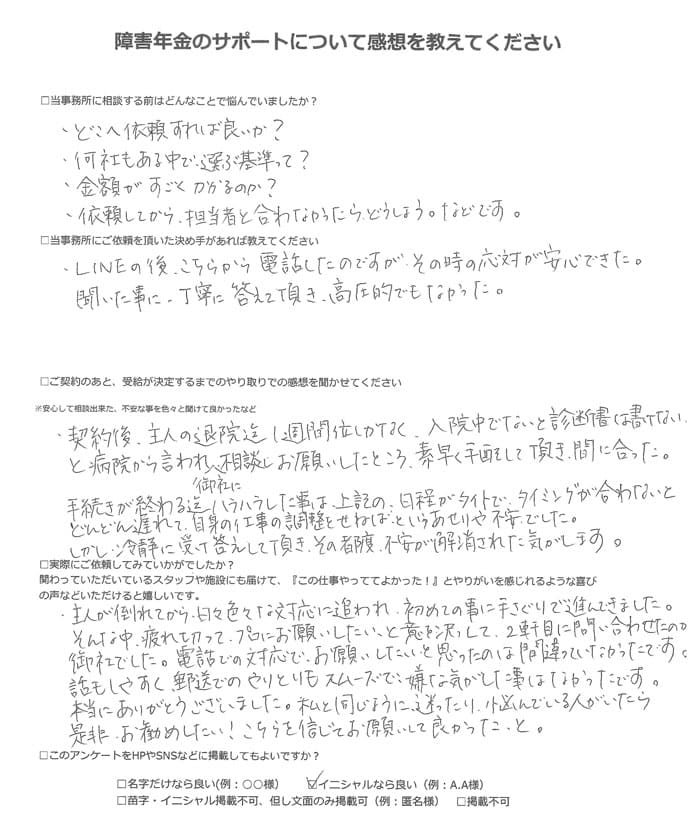 障害年金のサポートについて感想を教えてください
□当事務所に相談する前はどんなことで悩んでいましたか？
・どこへ依頼すれば良いか？
・何社もある中で、選ぶ基準って？
・金額がすごくかかるのか？
・依頼してから、担当者と合わなかったら、どうしよう。などです。
□当事務所にご依頼を頂いた決め手があれば教えてください
・LINEの後、こちらから電話したのですが、その時の応対が安心できた。
聞いた事に、丁寧に答えて頂き、高圧的でもなかった。
□ご契約のあと、受給が決定するまでのやり取りでの感想を聞かせてください
※安心して相談出来た、不安な事を色々と聞けて良かったなど
・契約後、主人の退院迄1週間位しかなく、入院中でないと診断書は書けない、
と病院から言われ、御社に相談しお願いしたところ、素早く手配をして頂き、間に合った。
手続きが終わる迄ハラハラした事は、上記の、日程がタイトで、タイミングが合わないと
どんどん遅れて、自身の仕事の調整をせねば、というあせりや不安でした。
しかし、冷静に受け答えして頂き、その都度、不安が解消された気がします。
□実際にご依頼してみていかがでしたか？
関わっていただいているスタッフや施設にも届けて、『この仕事やっててよかった！』とやりがいを感じれるような喜び
の声などいただけると嬉しいです。
・主人が倒れてから、日々色々な対応に追われ、初めての事に手さぐりで進んできました。
そんな中、疲れ切って、プロにお願いしたい、と意を決して、2軒目に問い合わせたのが
御社でした。電話での対応で、お願いしたいと思ったのは間違っていなかったです。
話もしやすく郵送でのやりとりもスムーズで、嫌な気がした事はなかったです。
本当にありがとうございました。私と同じように迷ったり、悩んでいる人がいたら
是非、お勧めしたい！こちらを信じてお願いして良かった、と。
□このアンケートをHPやSNSなどに掲載してもよいですか？
□名字だけなら良い(例：○○様）　☑イニシャルなら良い（例：A.A様）
□苗字・イニシャル掲載不可、但し文面のみ掲載可（例：匿名様）　□掲載不可